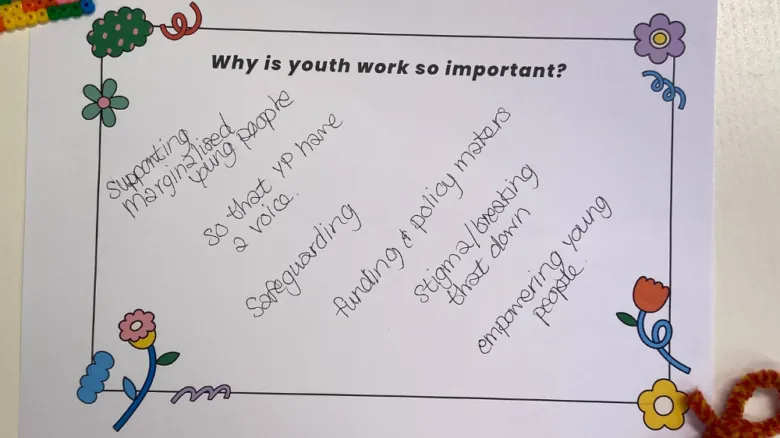 Why is youth work so important?
Supporting
marginalised
young people
so that YP have
a voice.
Safeguarding
funding & policy maters
stigma/breaking
that down
empowering young
people.